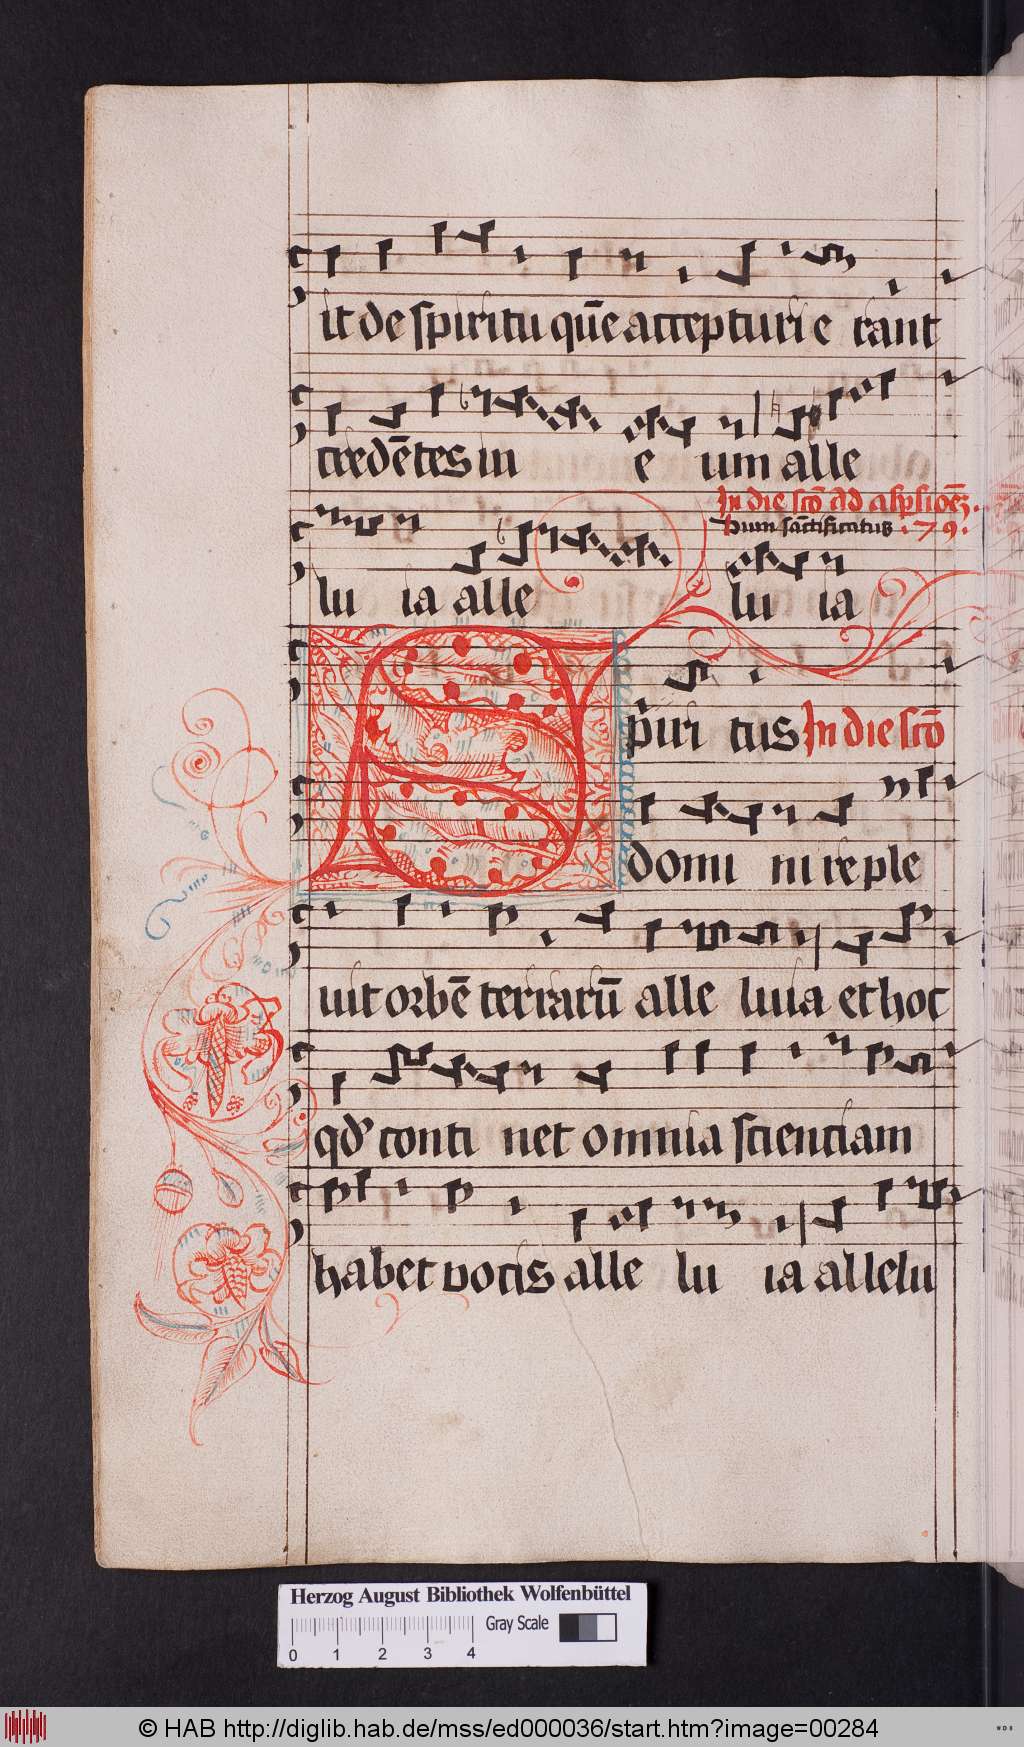 it de spiritu quē accepturi e rant
credētes in e um alle
In die scō ad aspsioēz.
Dum sāctificatus .79.
lu ia alle lu ia
Spiri tus In die scō
domi ni reple
uit orbē terrarū alle luia et hoc
qd' conti net omnia scienciam
habet vocis alle lu ia allelu
Herzog August Bibliothek Wolfenbüttel
Gray Scale
0 1 2 3 4
© HAB http://diglib.hab.de/mss/ed000036/start.htm?image=00284